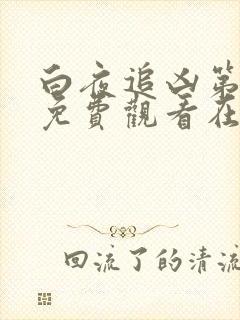 白夜追凶第
免費觀看在
回流了的清流